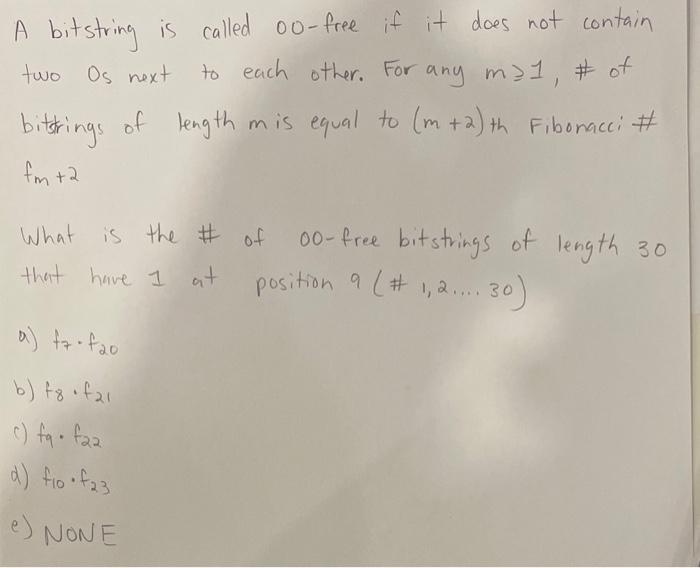 A bitstring is called 00-free if it does not contain
two 0s next to each other. For any m⩾1, # of
bitstrings of length m is equal to (m+2)th Fibonacci #
fm+2
What is the # of 00-free bitstrings of length 30
that have 1 at position 9 (# 1,2.... 30)
a) f7·f20
b) f8·f21
c) f9·f22
d) f10·f23
e) NONE